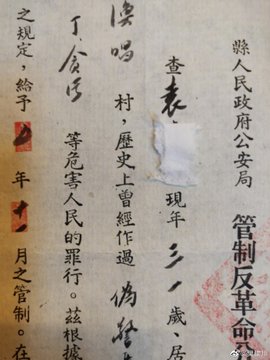 縣人民政府公安局
管制反革命分
查袁 現年三一歲、居
渙唱村，歷史上曾經作過偽警
丁貪污等危害人民的罪行。茲根據
之規定，給予 年十一月之管制。在